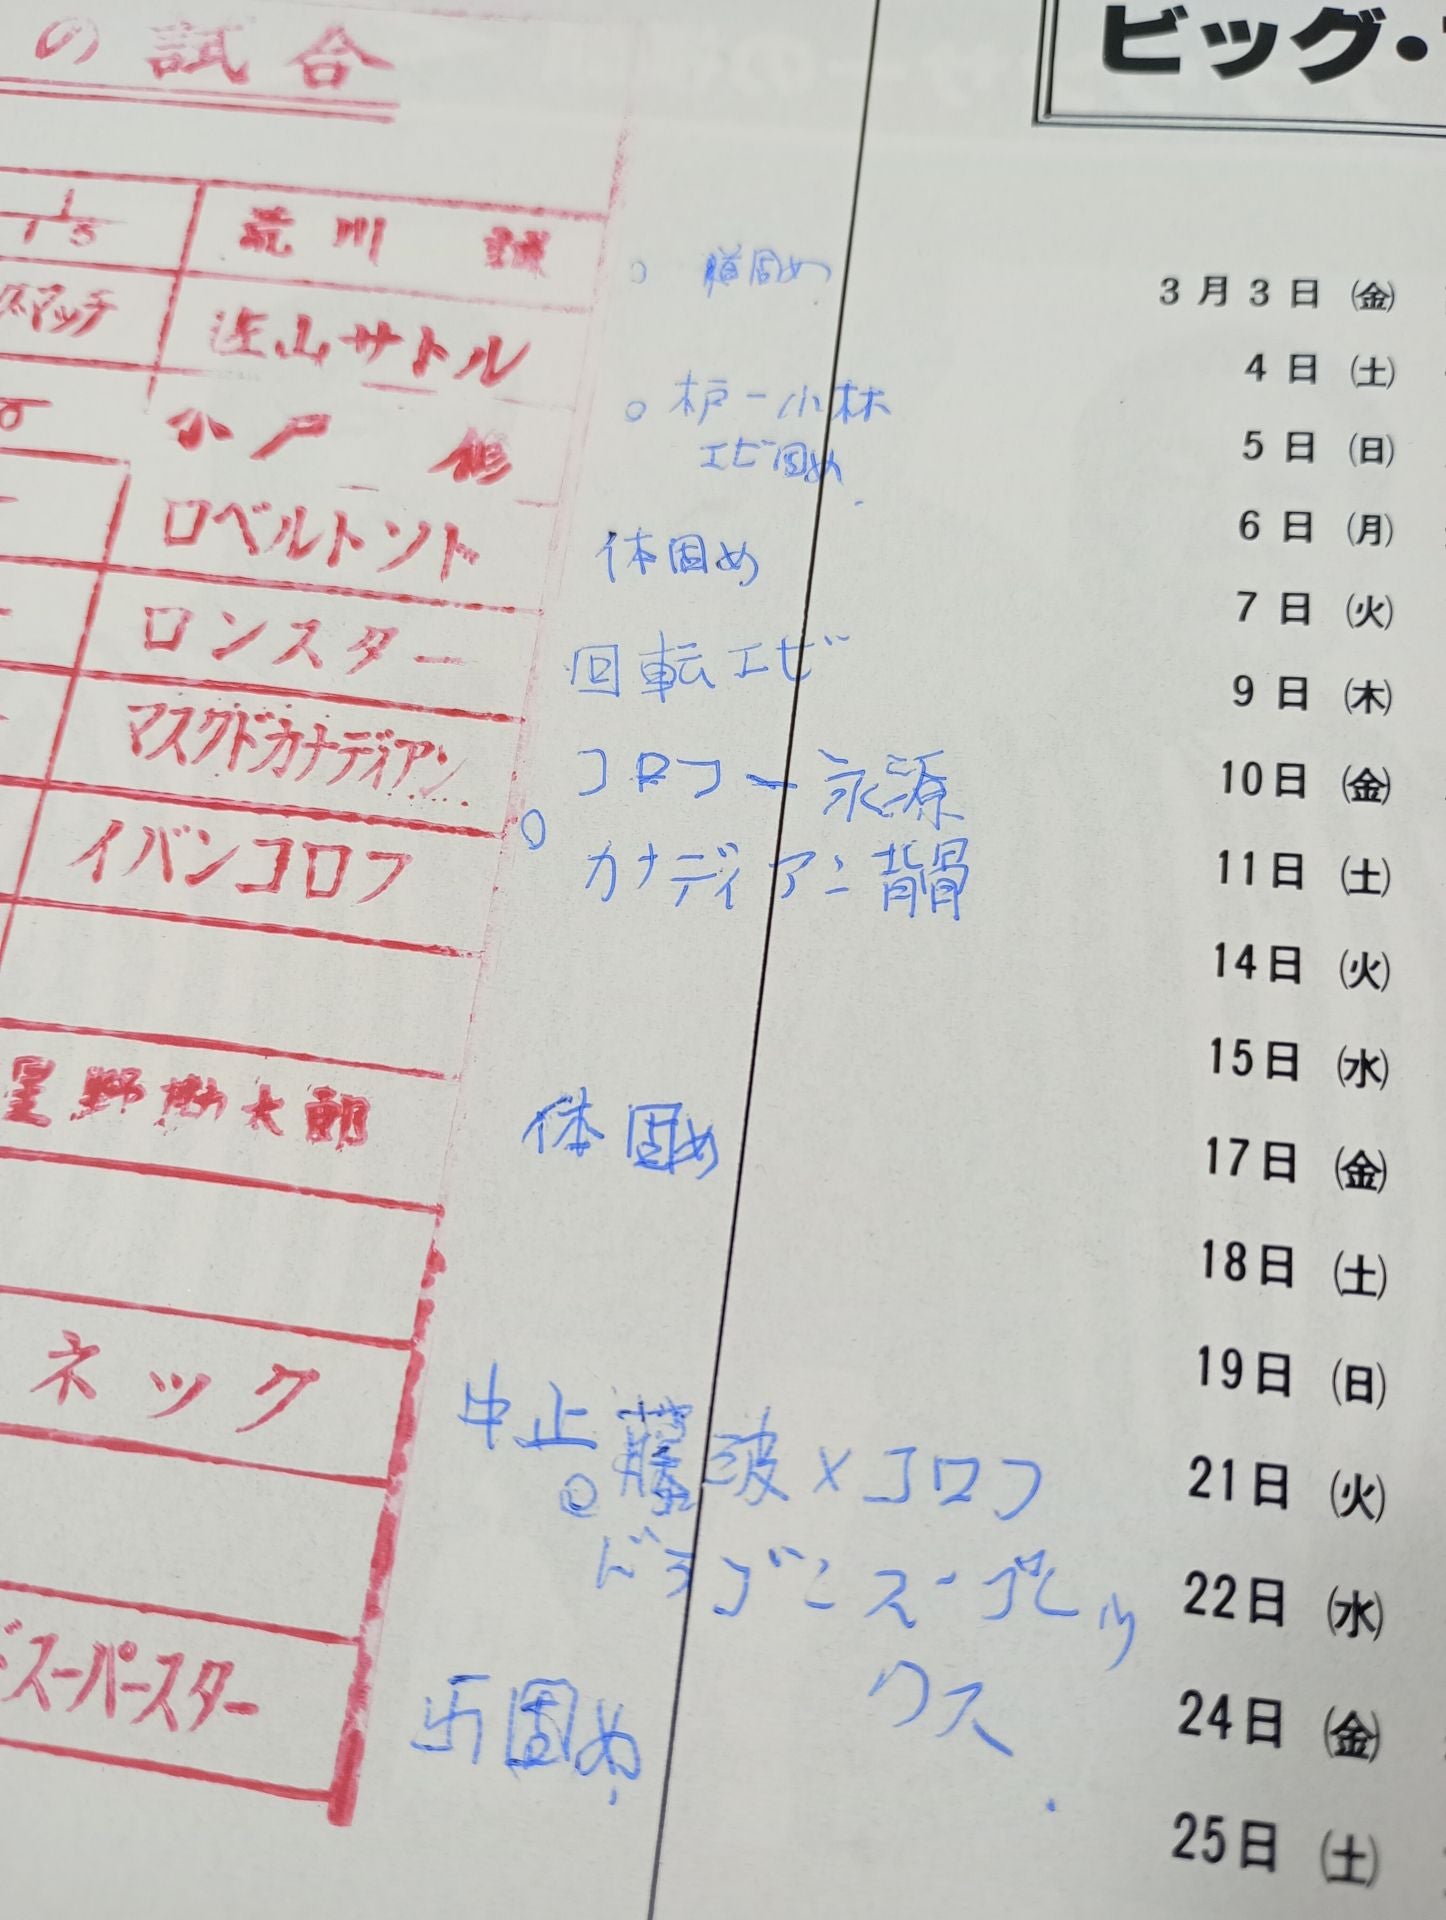 の試合
1/15 荒川 誠
ズマッチ 佐山サトル
木戸 修
ロベルトソト
ロンスター
マスクドカナディアン
イバンコロフ
星野勘太郎
ネック
ドスーパースター
○
固め
○ 木戸ー小林
エビ固め
体固め
回転エビ
コロフー永源
○ カナディアン背骨
体固め
中止 藤波×コロフ
○
ドラゴンスープレッ
クス
固め
ビッグ・
3月3日㈮
4日㈯
5日㈰
6日㈪
7日㈫
9日㈭
10日㈮
11日㈯
14日㈫
15日㈬
17日㈮
18日㈯
19日㈰
21日㈫
22日㈬
24日㈮
25日㈯